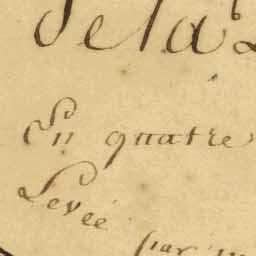 de la
En quatre
Levée
par